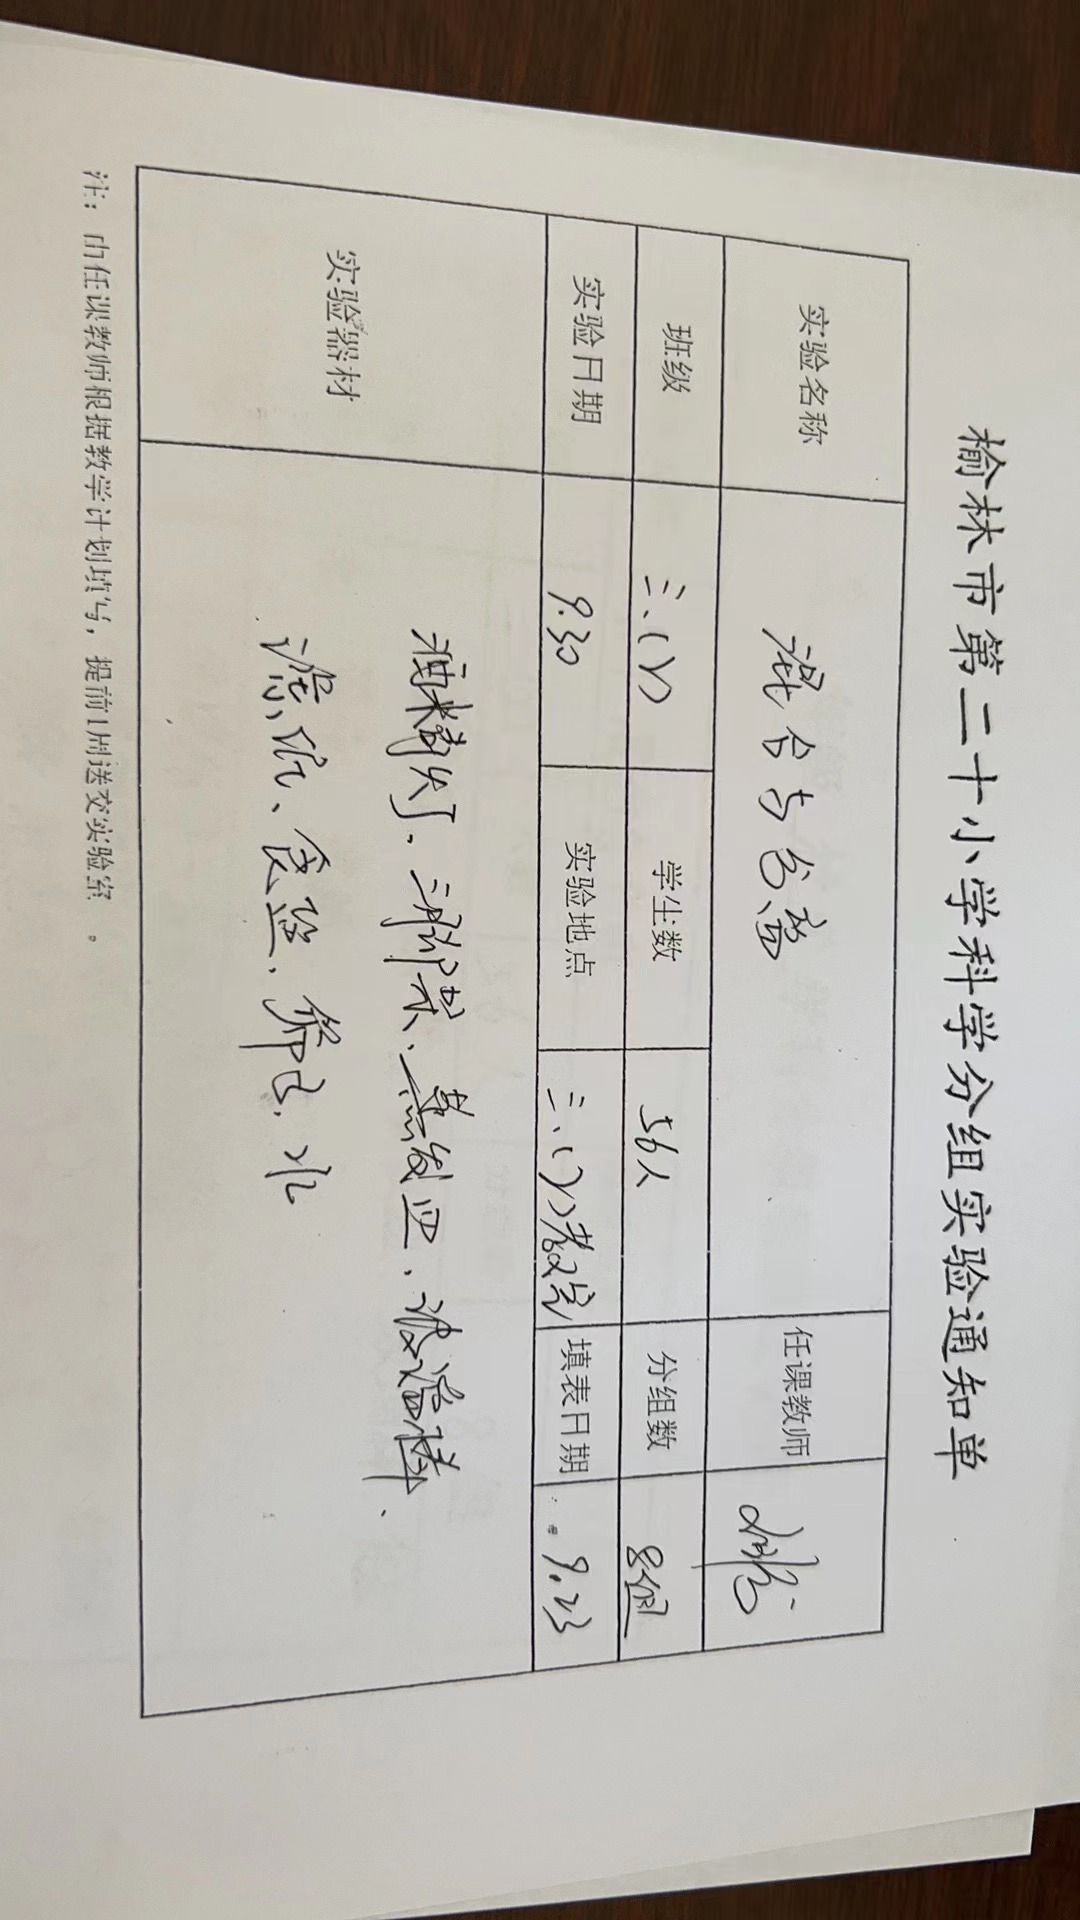 榆林市第二十小学科学分组实验通知单
实验名称 混合与分离 任课教师
班级 三.(1) 学生数 56人 分组数 8组
实验日期 9.30 实验地点 三.(1)教室 填表日期 9.23
实验器材 酒精灯、三脚架、蒸发皿、玻璃棒、
滤纸、食盐、水
注：由任课教师根据教学计划填写，提前1周送交实验室。